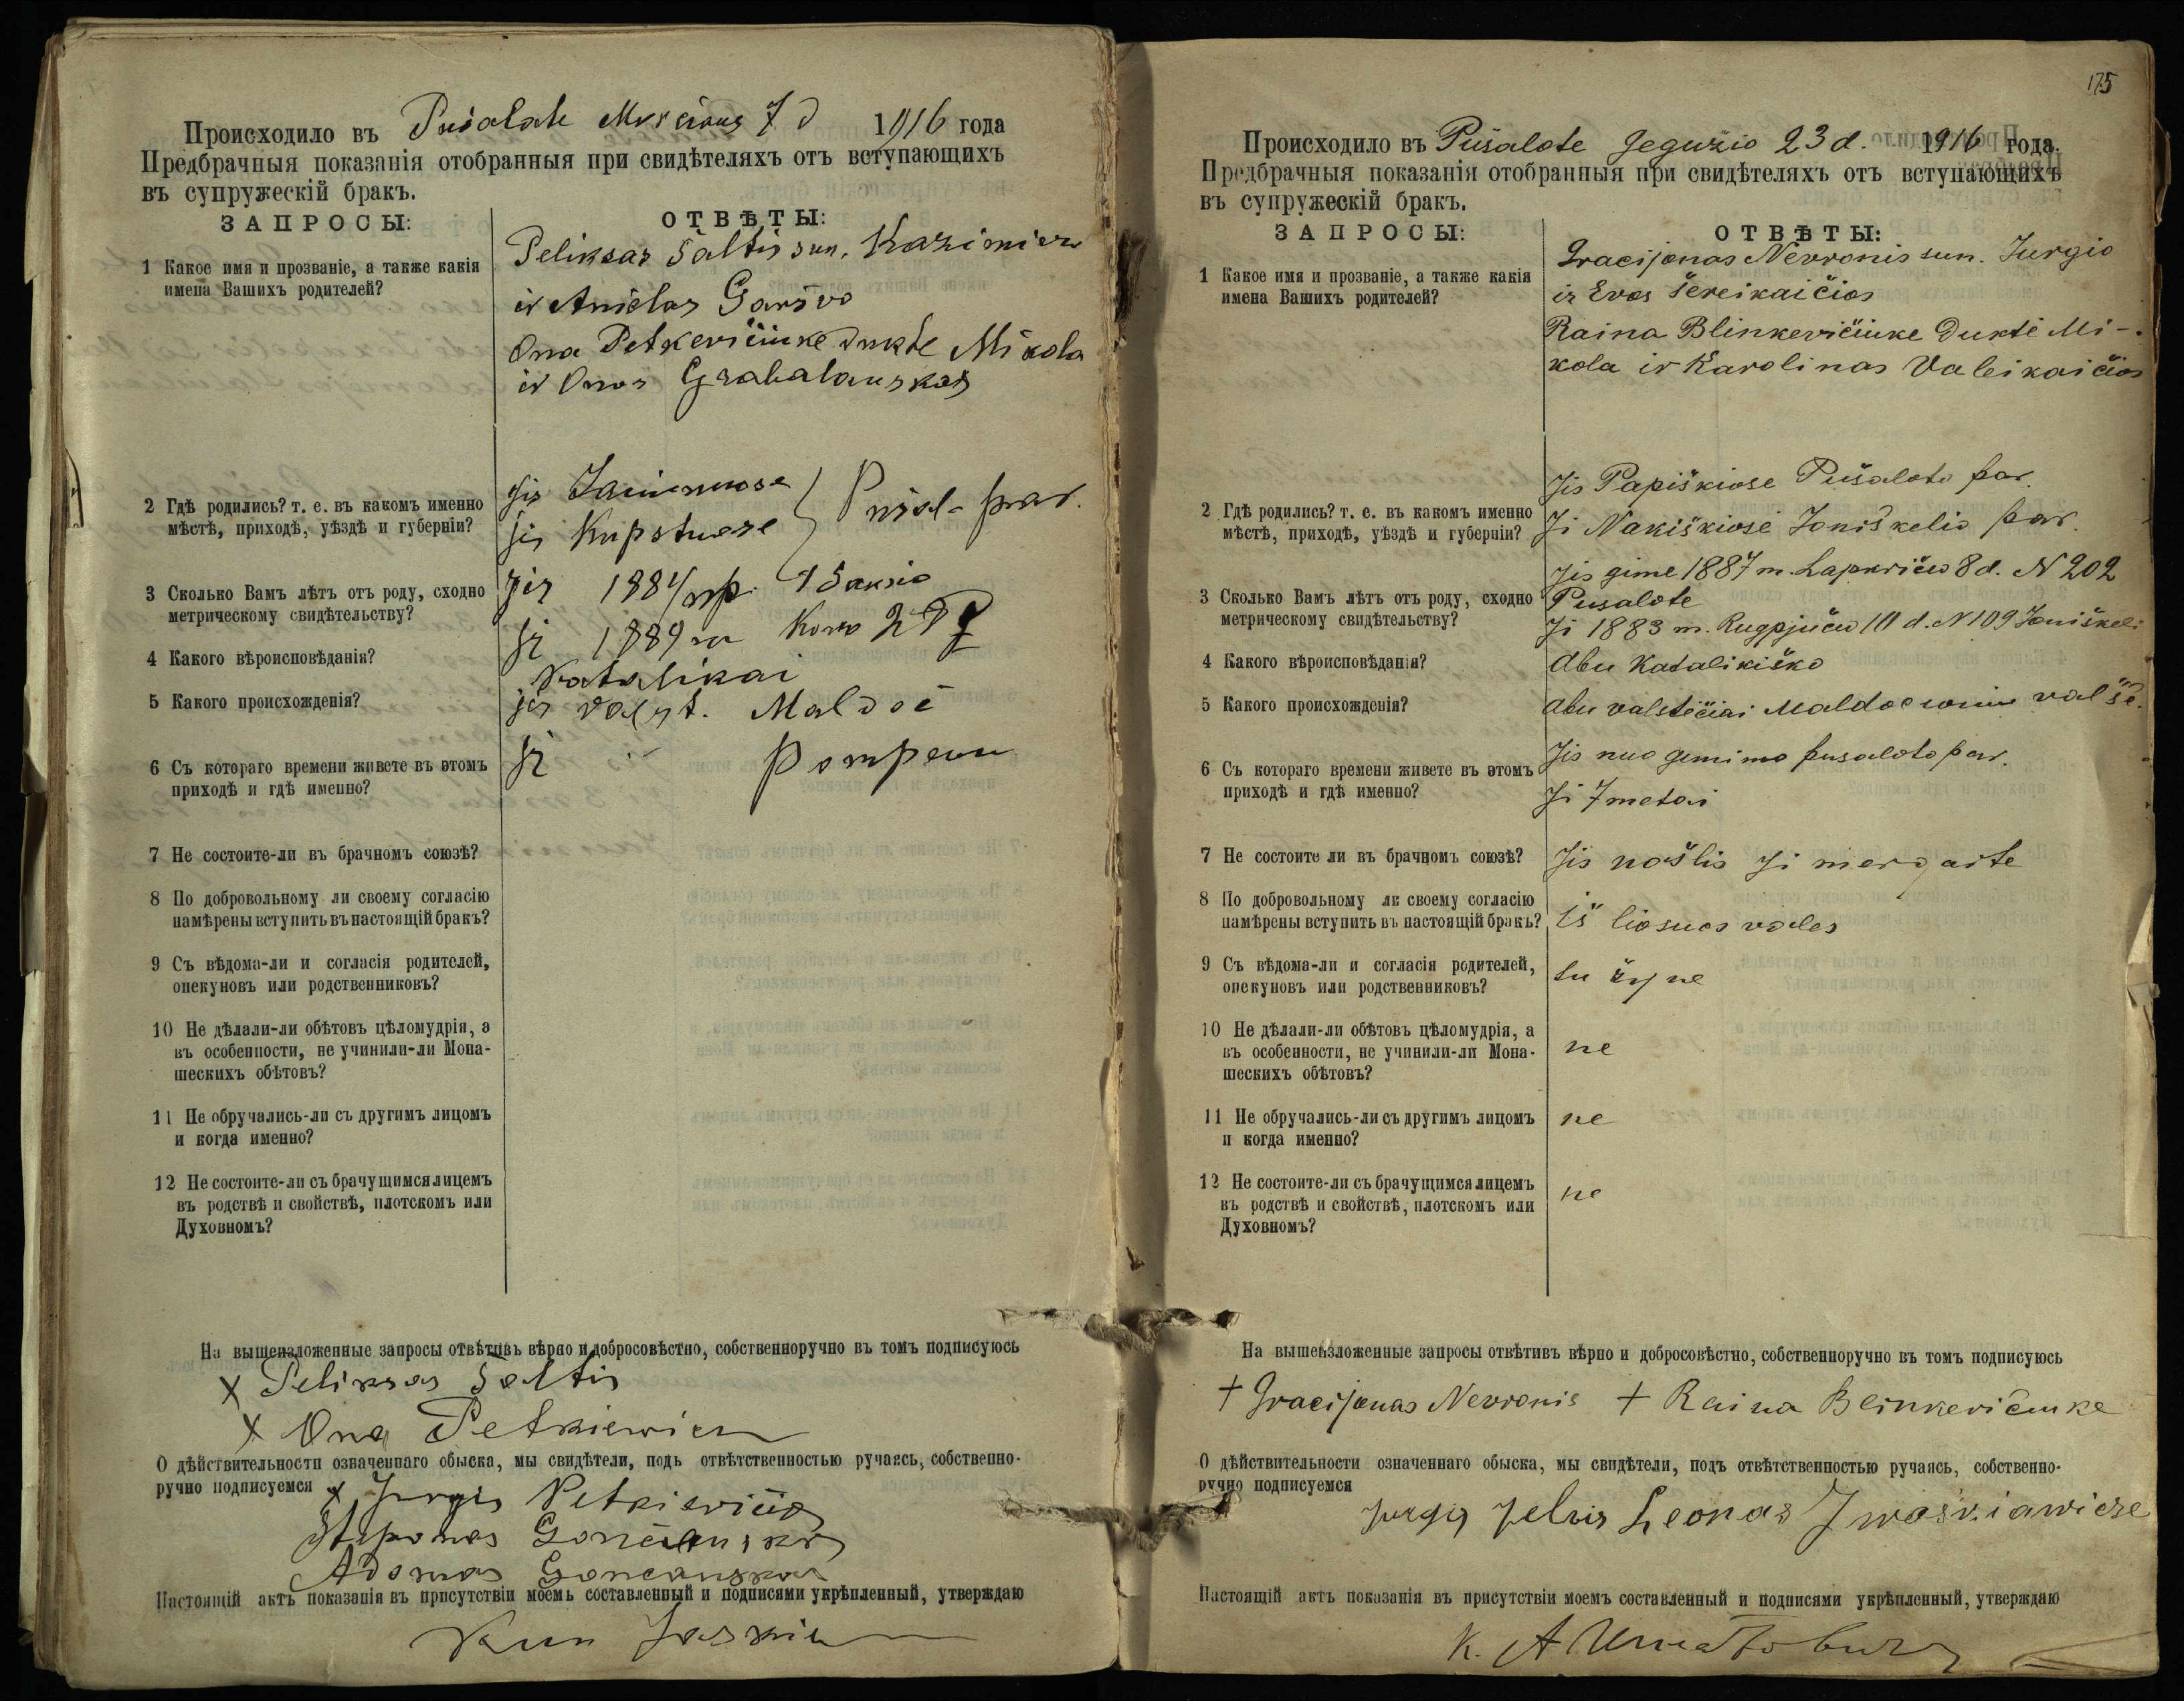 Происходило въ Pušalate 7 d 1916 года
Предбрачныя показанія отобранныя при свидѣтеляхъ отъ вступающихъ
въ супружескій бракъ.
ЗАПРОСЫ:
ОТВѢТЫ:
1 Какое имя и прозваніе, а также какія
имена Вашихъ родителей?
Peliksas Šaltis sun. Kazimiera
ir Anielas Garšvo
Ona Petkevičiuke dukte Mikola
ir Onos Grabalauskas
2 Гдѣ родились? т. е. въ какомъ именно
мѣстѣ, приходѣ, уѣздѣ и губерніи?
Jis
ji Kupstuose
Pušal- par.
3 Сколько Вамъ лѣтъ отъ роду, сходно
метрическому свидѣтельству?
jis 1884 Sausio
ji 1889 m Kovo
4 Какого вѣроисповѣданія?
Katalikai
5 Какого происхожденія?
jis valst. Maldoč
ji " Pompenu
6 Съ котораго времени живете въ этомъ
приходѣ и гдѣ именно?
7 Не состоите-ли въ брачномъ союзѣ?
8 По добровольному ли своему согласію
намѣрены вступить въ настоящій бракъ?
9 Съ вѣдома-ли и согласія родителей,
опекуновъ или родственниковъ?
10 Не дѣлали-ли обѣтовъ цѣломудрія, а
въ особенности, не учинили-ли Мона-
шескихъ обѣтовъ?
11 Не обручались-ли съ другимъ лицомъ
и когда именно?
12 Не состоите-ли съ брачущимся лицемъ
въ родствѣ и свойствѣ, плотскомъ или
Духовномъ?
На вышеизложенные запросы отвѣтивъ вѣрно и добросовѣстно, собственноручно въ томъ подписуюсь
x Peliksas Šaltis
x Ona Petkiewicz
О дѣйствительности означеннаго обыска, мы свидѣтели, подъ отвѣтственностью ручаясь, собственно-
ручно подписуемся x Jurgis Petkiewičia
Steponas Gončauskas
Adomas Goncauskas
Настоящій актъ показанія въ присутствіи моемъ составленный и подписями укрѣпленный, утверждаю
Kun
175
Происходило въ Pušalote Gegužio 23 d. 1916 года.
Предбрачныя показанія отобранныя при свидѣтеляхъ отъ вступающихъ
въ супружескій бракъ.
ЗАПРОСЫ:
ОТВѢТЫ:
1 Какое имя и прозваніе, а также какія
имена Вашихъ родителей?
Gracijonas Nevronis sun. Jurgio
ir Evos Šereikaičios
Raina Blinkevičiuke Duktė Mi-
kola ir Karolinas Valeikaičios
2 Гдѣ родились? т. е. въ какомъ именно
мѣстѣ, приходѣ, уѣздѣ и губерніи?
Jis Papiškiose Pušaloto par.
Ji Nakiškiose Joniškelio par.
3 Сколько Вамъ лѣтъ отъ роду, сходно
метрическому свидѣтельству?
Jis gime 1887 m. Lapkričio 8 d. N 202
Pusalote
Ji 1883 m. Rugpjučio 10 d. N 109 Joniškeli
4 Какого вѣроисповѣданія?
Abu Katalikiško
5 Какого происхожденія?
Abu valstečiai
6 Съ котораго времени живете въ этомъ
приходѣ и гдѣ именно?
Jis nuo gemimo pusaloto par.
Ji 7 metai
7 Не состоите ли въ брачномъ союзѣ?
Jis našlis Ji mergaite
8 По добровольному ли своему согласію
намѣрены вступить въ настоящій бракъ?
iš liosuos vales
9 Съ вѣдома-ли и согласія родителей,
опекуновъ или родственниковъ?
su žyne
10 Не дѣлали-ли обѣтовъ цѣломудрія, а
въ особенности, не учинили-ли Мона-
шескихъ обѣтовъ?
ne
11 Не обручались-ли съ другимъ лицомъ
и когда именно?
ne
12 Не состоите-ли съ брачущимся лицемъ
въ родствѣ и свойствѣ, плотскомъ или
Духовномъ?
ne
На вышеизложенные запросы отвѣтивъ вѣрно и добросовѣстно, собственноручно въ томъ подписуюсь
+ Gracijonas Nevronis + Raina Blinkevičiuke
О дѣйствительности означеннаго обыска, мы свидѣтели, подъ отвѣтственностью ручаясь, собственно-
ручно подписуемся
Leonas
Настоящій актъ показанія въ присутствіи моемъ составленный и подписями укрѣпленный, утверждаю
K. A